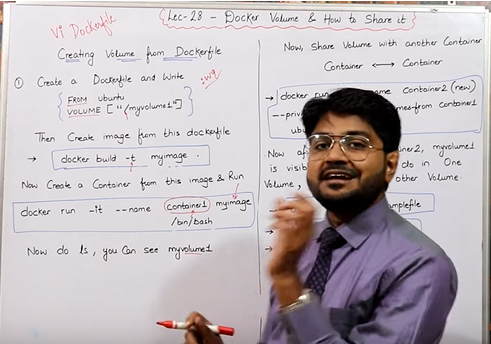 Vi Dockerfile
Lec-28 - Docker Volume & How to Share it
Creating Volume from Dockerfile
① Create a Dockerfile and Write :wq
FROM ubuntu
VOLUME ["/myvolume1"]
Then Create image from this dockerfile
→ docker build -t myimage .
Now Create a Container from this image & Run
docker run -it --name container1 myimage
/bin/bash
Now do ls, you Can see myvolume1
Now, Share Volume with another Container
Container ⟷ Container
→ docker run name container2 (new)
--pri mes-from container1
ubu
Now af ner2, myvolume1
is visib do in One
Volume, other Volume.
mplefile
→
→